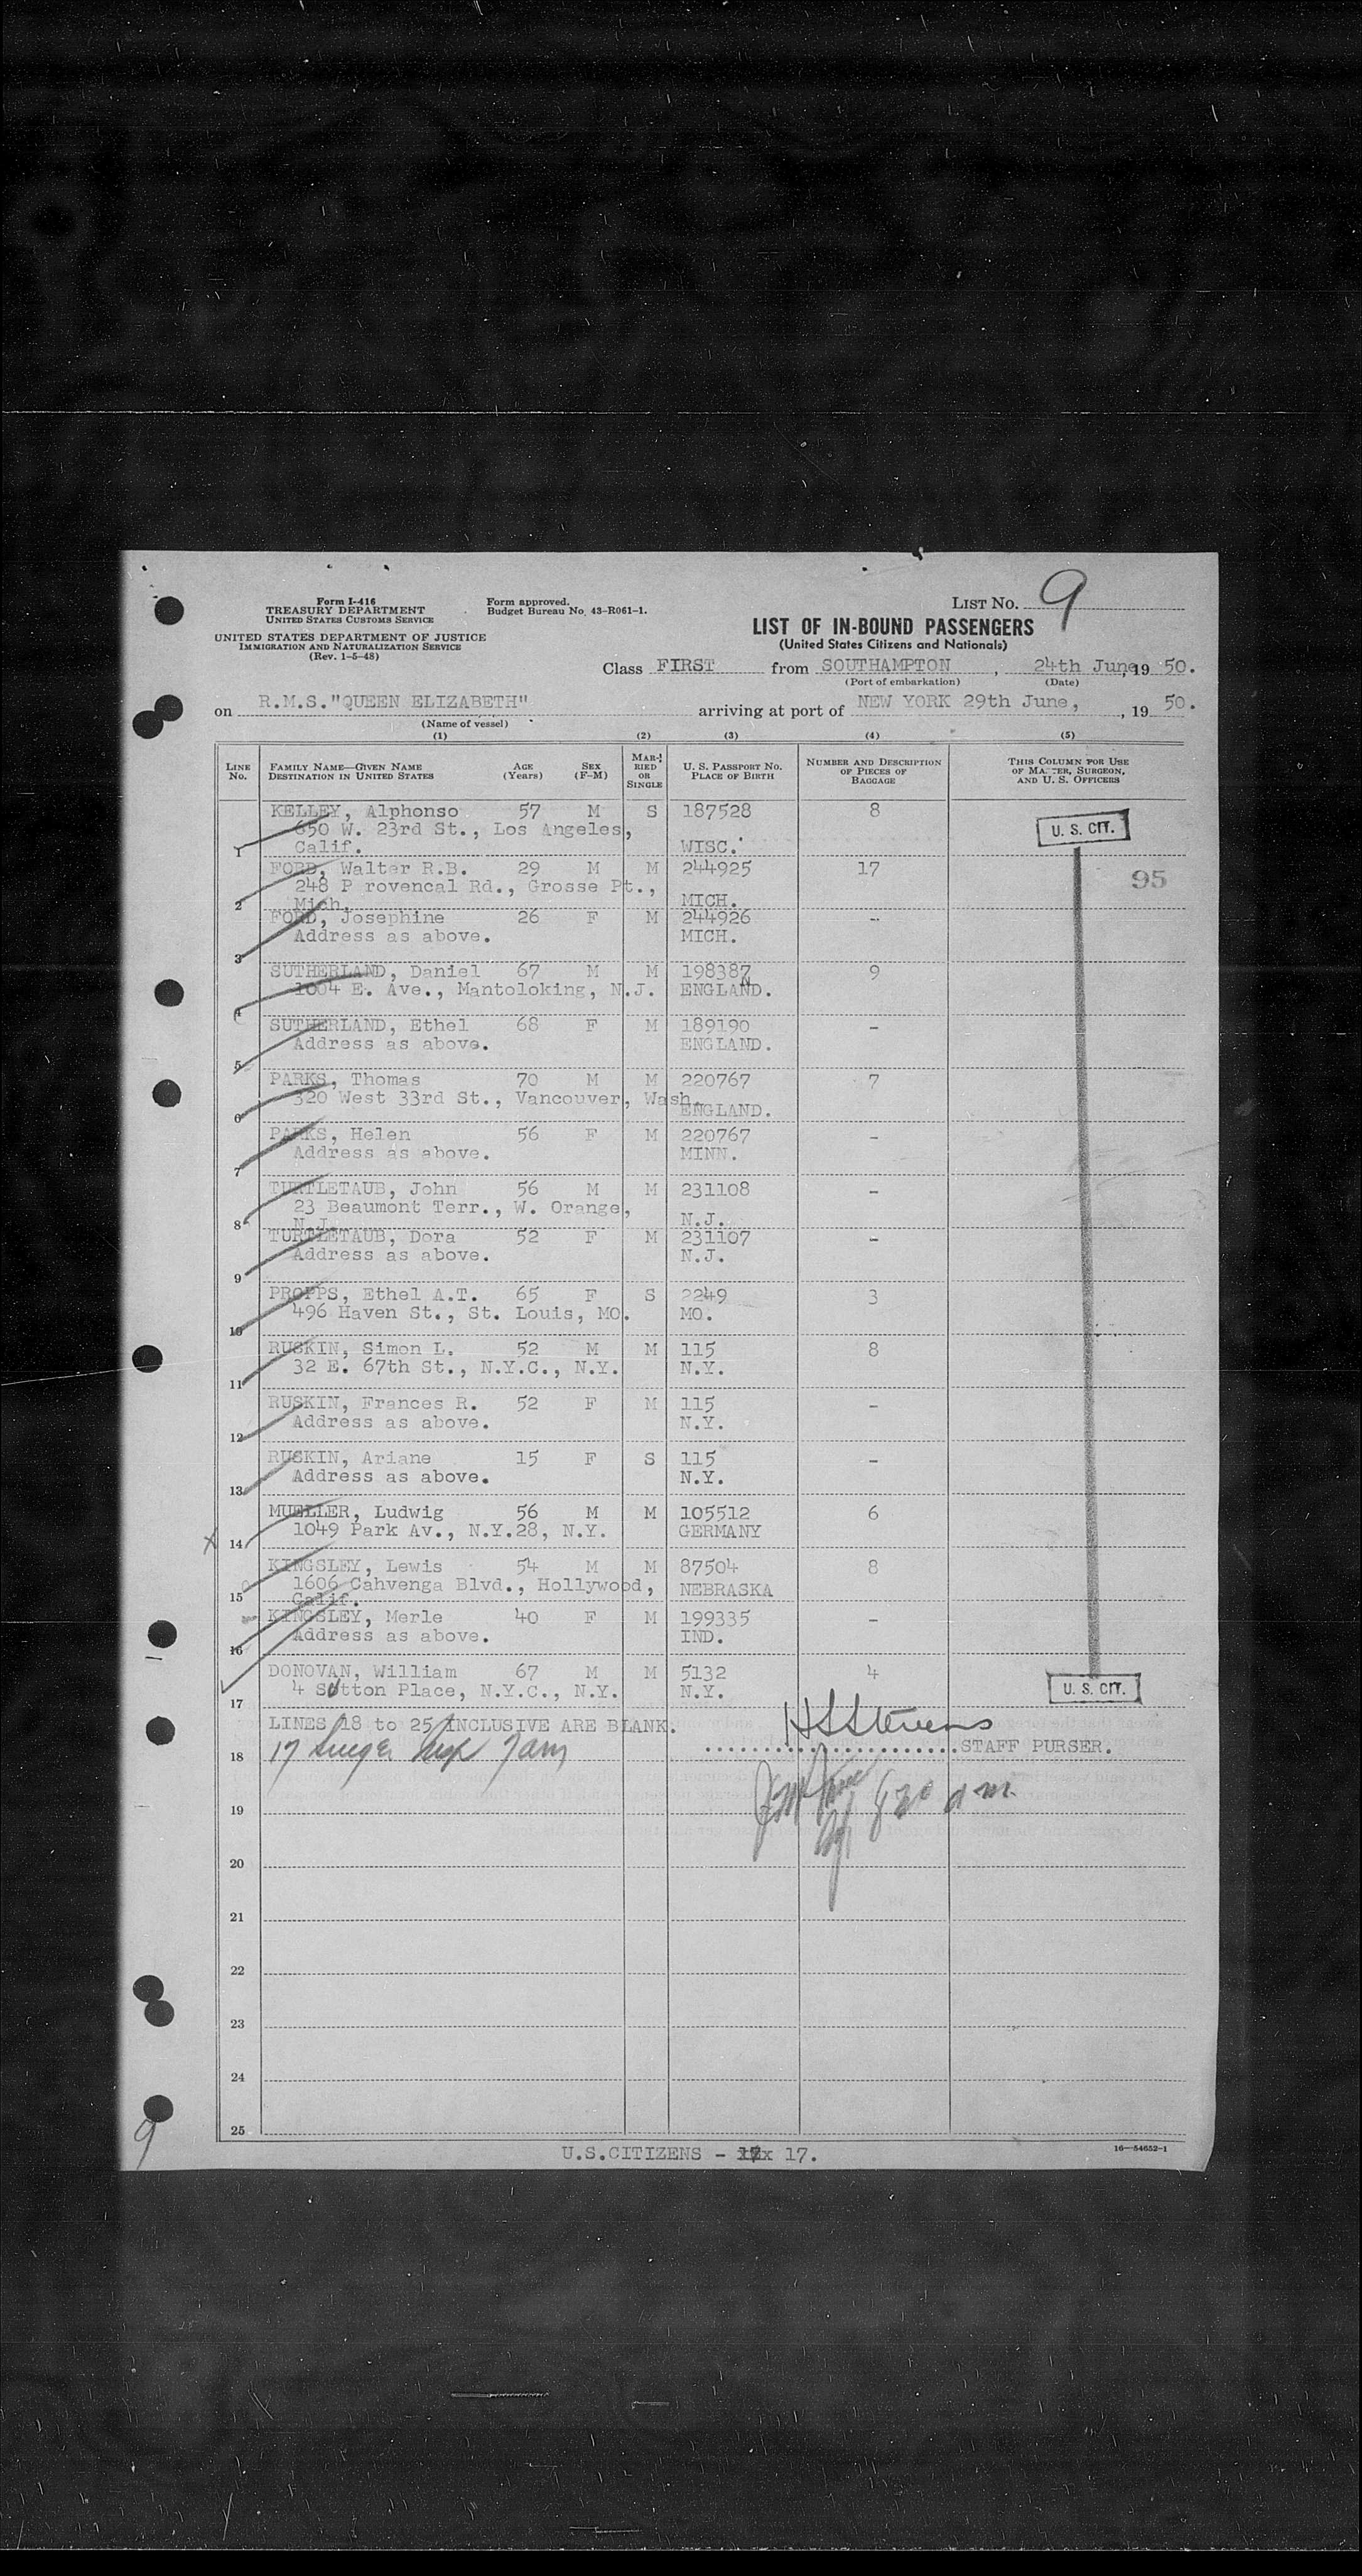 Form I-416
TREASURY DEPARTMENT
UNITED STATES CUSTOMS SERVICE
UNITED STATES DEPARTMENT OF JUSTICE
IMMIGRATION AND NATURALIZATION SERVICE
(Rev. 1-5-48)
Form approved.
Budget Bureau No. 43-R061-1.
LIST NO. 9
LIST OF IN-BOUND PASSENGERS
(United States Citizens and Nationals)
Class FIRST from SOUTHAMPTON , 24th June, 19 50.
(Port of embarkation) (Date)
on R.M.S."QUEEN ELIZABETH" arriving at port of NEW YORK 29th June, , 19 50.
(Name of vessel)
(1) (2) (3) (4) (5)
LINE NO. FAMILY NAME—GIVEN NAME DESTINATION IN UNITED STATES AGE (Years) SEX (F-M) MARRIED OR SINGLE U. S. PASSPORT NO. PLACE OF BIRTH NUMBER AND DESCRIPTION OF PIECES OF BAGGAGE THIS COLUMN FOR USE OF MASTER, SURGEON, AND U. S. OFFICERS
KELLEY, Alphonso 57 M S 187528 8
650 W. 23rd St., Los Angeles, U. S. CIT.
1 Calif. WISC.
FORD, Walter R.B. 29 M M 244925 17 95
248 P rovencal Rd., Grosse Pt.,
2 Mich. MICH.
FORD, Josephine 26 F M 244926 -
Address as above. MICH.
3
SUTHERLAND, Daniel 67 M M 198387 9
1004 E. Ave., Mantoloking, N.J. ENGLAND.
4
SUTHERLAND, Ethel 68 F M 189190 -
Address as above. ENGLAND.
5
PARKS, Thomas 70 M M 220767 7
320 West 33rd St., Vancouver, Wash.
6 ENGLAND.
PARKS, Helen 56 F M 220767 -
Address as above. MINN.
7
TURTLETAUB, John 56 M M 231108 -
23 Beaumont Terr., W. Orange,
8 N.J. N.J.
TURTLETAUB, Dora 52 F M 231107 -
Address as above. N.J.
9
PROPPS, Ethel A.T. 65 F S 2249 3
496 Haven St., St. Louis, MO. MO.
10
RUSKIN, Simon L. 52 M M 115 8
32 E. 67th St., N.Y.C., N.Y. N.Y.
11
RUSKIN, Frances R. 52 F M 115 -
Address as above. N.Y.
12
RUSKIN, Ariane 15 F S 115 -
Address as above. N.Y.
13
MUELLER, Ludwig 56 M M 105512 6
1049 Park Av., N.Y.28, N.Y. GERMANY
x 14
KINGSLEY, Lewis 54 M M 87504 8
1606 Cahvenga Blvd., Hollywood, NEBRASKA
15 Calif.
KINGSLEY, Merle 40 F M 199335 -
Address as above. IND.
16
DONOVAN, William 67 M M 5132 4
4 Sutton Place, N.Y.C., N.Y. N.Y. U. S. CIT.
17
LINES 18 to 25 INCLUSIVE ARE BLANK. H S Stevens
18 17 7am STAFF PURSER.
19 8 30 a m
20
21
22
23
24
25
9
U.S.CITIZENS - 17.
16—54652-1